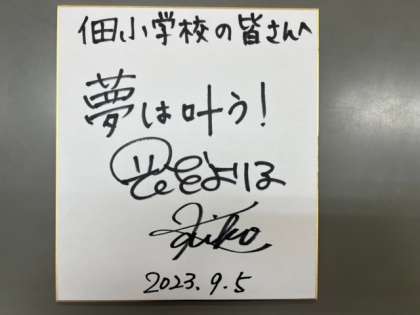 佃小学校の皆さんへ
夢は叶う!
2023.9.5